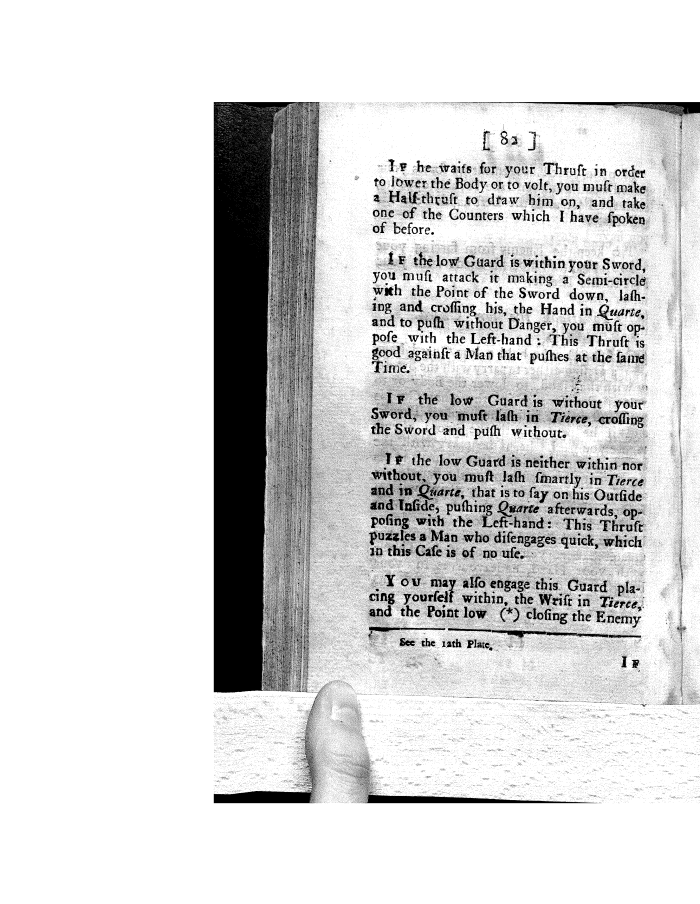 [ 82 ]
IF he waits for your Thruſt in order
to lower the Body or to volt, you muſt make
a Half-thruſt to draw him on, and take
one of the Counters which I have ſpoken
of before.
IF the low Guard is within your Sword,
you muſt attack it making a Semi-circle
with the Point of the Sword down, laſh-
ing and croſſing his, the Hand in Quarte,
and to puſh without Danger, you muſt op-
poſe with the Left-hand : This Thruſt is
good againſt a Man that puſhes at the ſame
Time.
IF the low Guard is without your
Sword, you muſt laſh in Tierce, croſſing
the Sword and puſh without.
IF the low Guard is neither within nor
without, you muſt laſh ſmartly in Tierce
and in Quarte, that is to ſay on his Outſide
and Inſide, puſhing Quarte afterwards, op-
poſing with the Left-hand : This Thruſt
puzzles a Man who diſengages quick, which
in this Caſe is of no uſe.
YOU may alſo engage this Guard pla-
cing yourſelf within, the Wriſt in Tierce,
and the Point low (*) cloſing the Enemy
See the 12th Plate.
IF